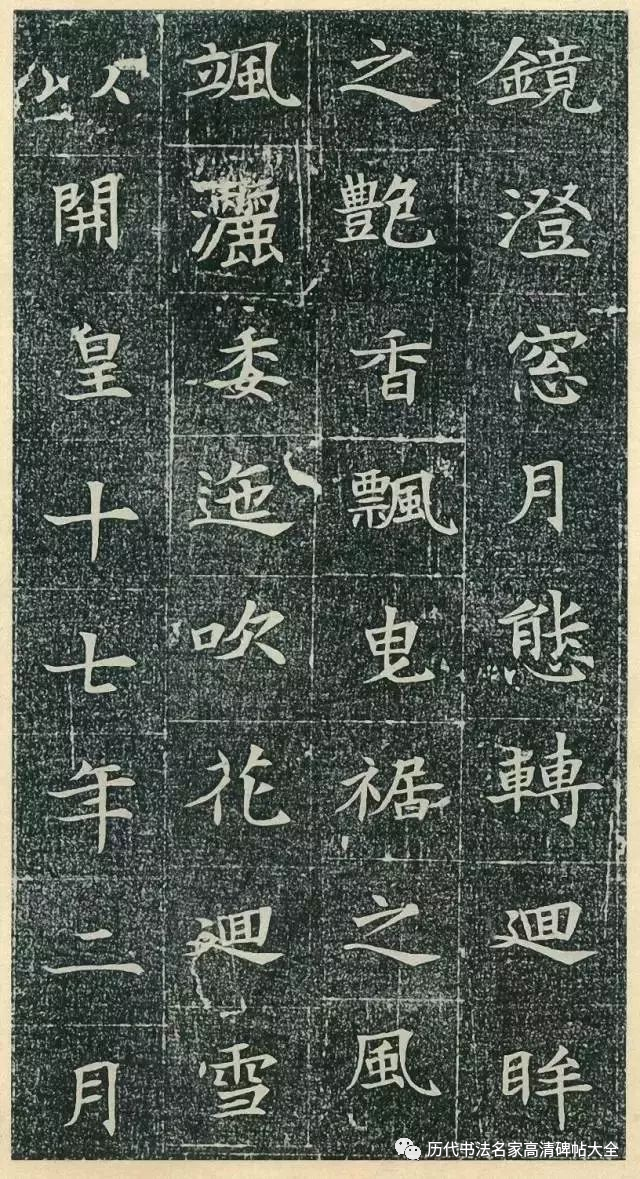 鏡澄窓月態轉迴眸
之艶香飄曳裾之風
颯灑委迤吹花迴雪
以開皇十七年二月
历代书法名家高清碑帖大全